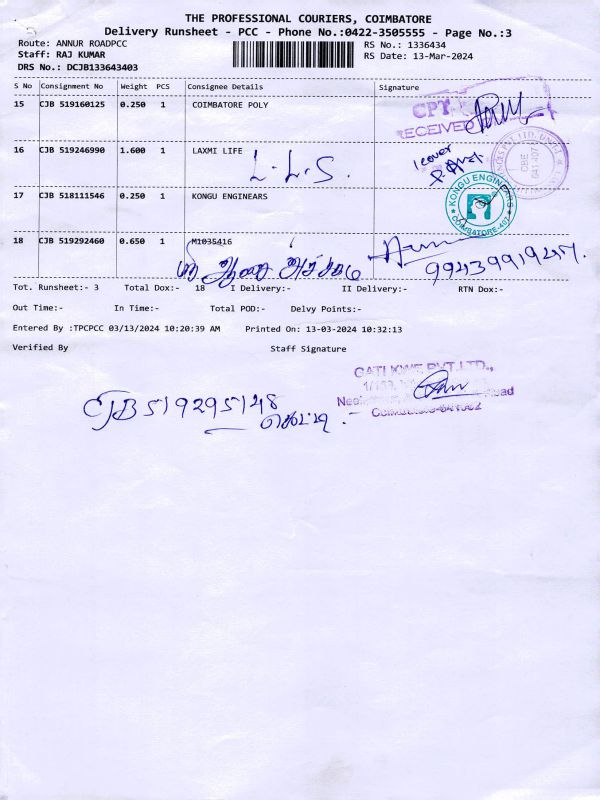 THE PROFESSIONAL COURIERS, COIMBATORE
Delivery Runsheet - PCC - Phone No.:0422-3505555 - Page No.:3
Route: ANNUR ROADPCC
RS No.: 1336434
Staff: RAJ KUMAR
RS Date: 13-Mar-2024
DRS No.: DCJB133643403
S No Consignment No Weight PCS Consignee Details Signature
15 CJB 519160125 0.250 1 COIMBATORE POLY
CPT
RECEIVED
16 CJB 519246990 1.600 1 LAXMI LIFE
L.L.S.
1 cover
CBE
641 407
17 CJB 518111546 0.250 1 KONGU ENGINEARS
KONGU ENGINEARS
COIMBATORE-407
18 CJB 519292460 0.650 1 M1035416
9943991947.
Tot. Runsheet:- 3 Total Dox:- 18 I Delivery:- II Delivery:- RTN Dox:-
Out Time:- In Time:- Total POD:- Delvy Points:-
Entered By :TPCPCC 03/13/2024 10:20:39 AM Printed On: 13-03-2024 10:32:13
Verified By Staff Signature
GATI KWE PVT.LTD.,
Road
Coimbatore-641062
CJB 519295148